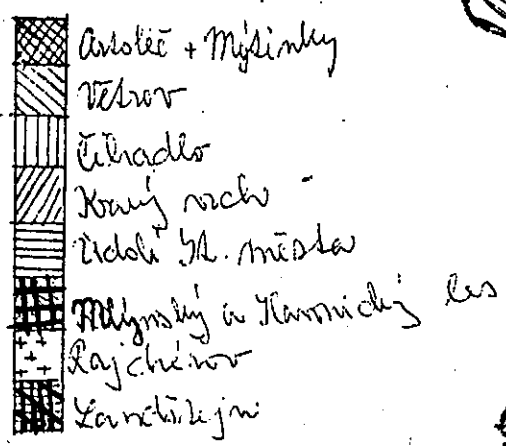 Artoleč + Mýtinky
Větrov
Čihadlo
Kravý vrch
Údolí St. města
Mlýnský a Klasnický les
Rajchéřov
Landštejn